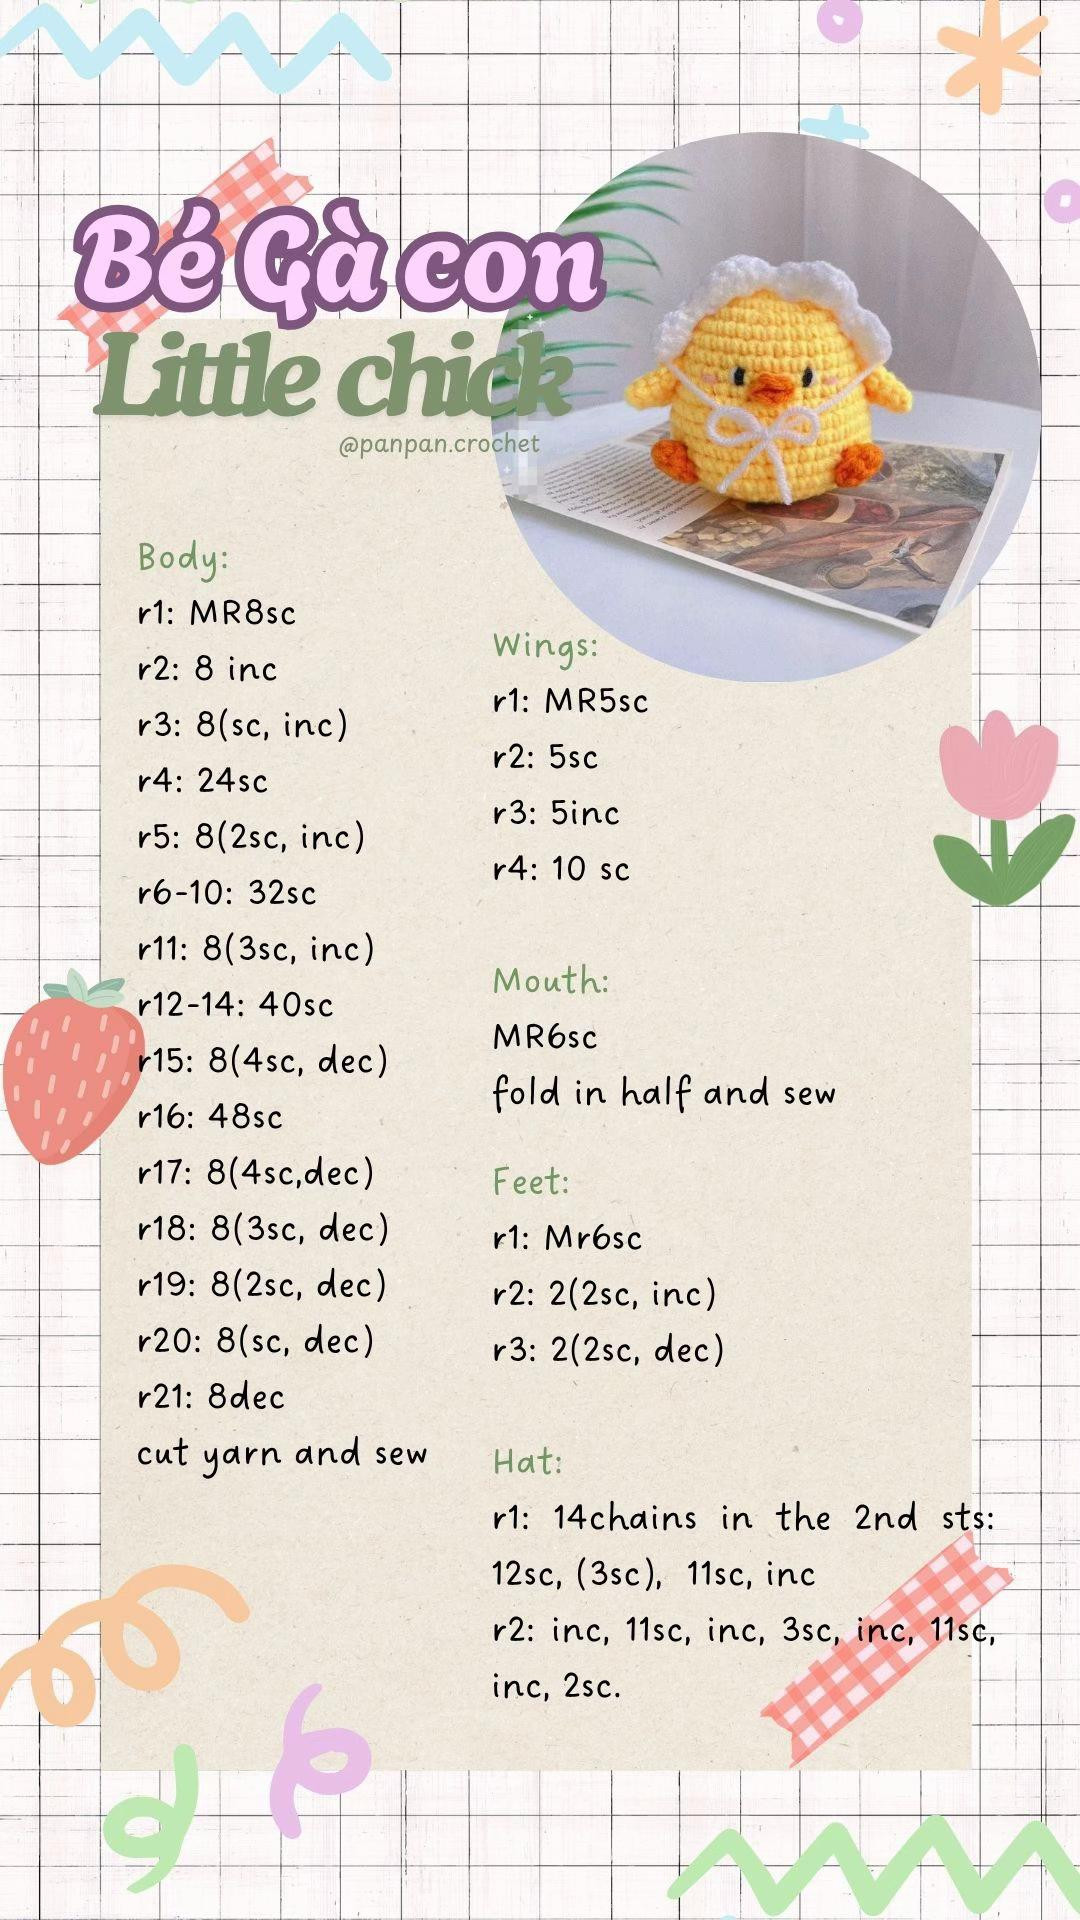 Bé Gà con
Little chick
@panpan.crochet
Body:
r1: MR8sc
r2: 8 inc
r3: 8(sc, inc)
r4: 24sc
r5: 8(2sc, inc)
r6-10: 32sc
r11: 8(3sc, inc)
r12-14: 40sc
r15: 8(4sc, dec)
r16: 48sc
r17: 8(4sc,dec)
r18: 8(3sc, dec)
r19: 8(2sc, dec)
r20: 8(sc, dec)
r21: 8dec
cut yarn and sew
Wings:
r1: MR5sc
r2: 5sc
r3: 5inc
r4: 10 sc
Mouth:
MR6sc
fold in half and sew
Feet:
r1: Mr6sc
r2: 2(2sc, inc)
r3: 2(2sc, dec)
Hat:
r1: 14chains in the 2nd sts:
12sc, (3sc), 11sc, inc
r2: inc, 11sc, inc, 3sc, inc, 11sc,
inc, 2sc.